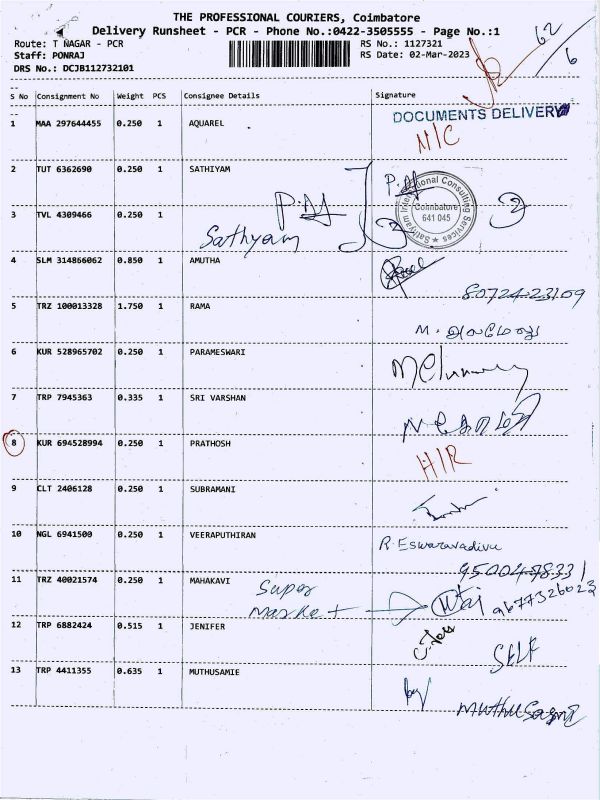 THE PROFESSIONAL COURIERS, Coimbatore
Delivery Runsheet - PCR - Phone No.:0422-3505555 - Page No.:1
Route: T NAGAR - PCR
RS No.: 1127321
Staff: PONRAJ
RS Date: 02-Mar-2023
DRS No.: DCJB112732101
62
6
S No Consignment No Weight PCS Consignee Details Signature
DOCUMENTS DELIVERY
1 MAA 297644455 0.250 1 AQUAREL
N/C
2 TUT 6362690 0.250 1 SATHIYAM
Sathiyam International Consulting Services
Coimbatore
641 045
3 TVL 4309466 0.250 1
Sathyam
4 SLM 314866062 0.850 1 AMUTHA
8072423109
5 TRZ 100013328 1.750 1 RAMA
6 KUR 528965702 0.250 1 PARAMESWARI
7 TRP 7945363 0.335 1 SRI VARSHAN
8 KUR 694528994 0.250 1 PRATHOSH
H/R
9 CLT 2406128 0.250 1 SUBRAMANI
10 NGL 6941500 0.250 1 VEERAPUTHIRAN
R. Eswaravadivu
9500478331
11 TRZ 40021574 0.250 1 MAHAKAVI
Super
Market
9677326023
12 TRP 6882424 0.515 1 JENIFER
SELF
13 TRP 4411355 0.635 1 MUTHUSAMIE
by